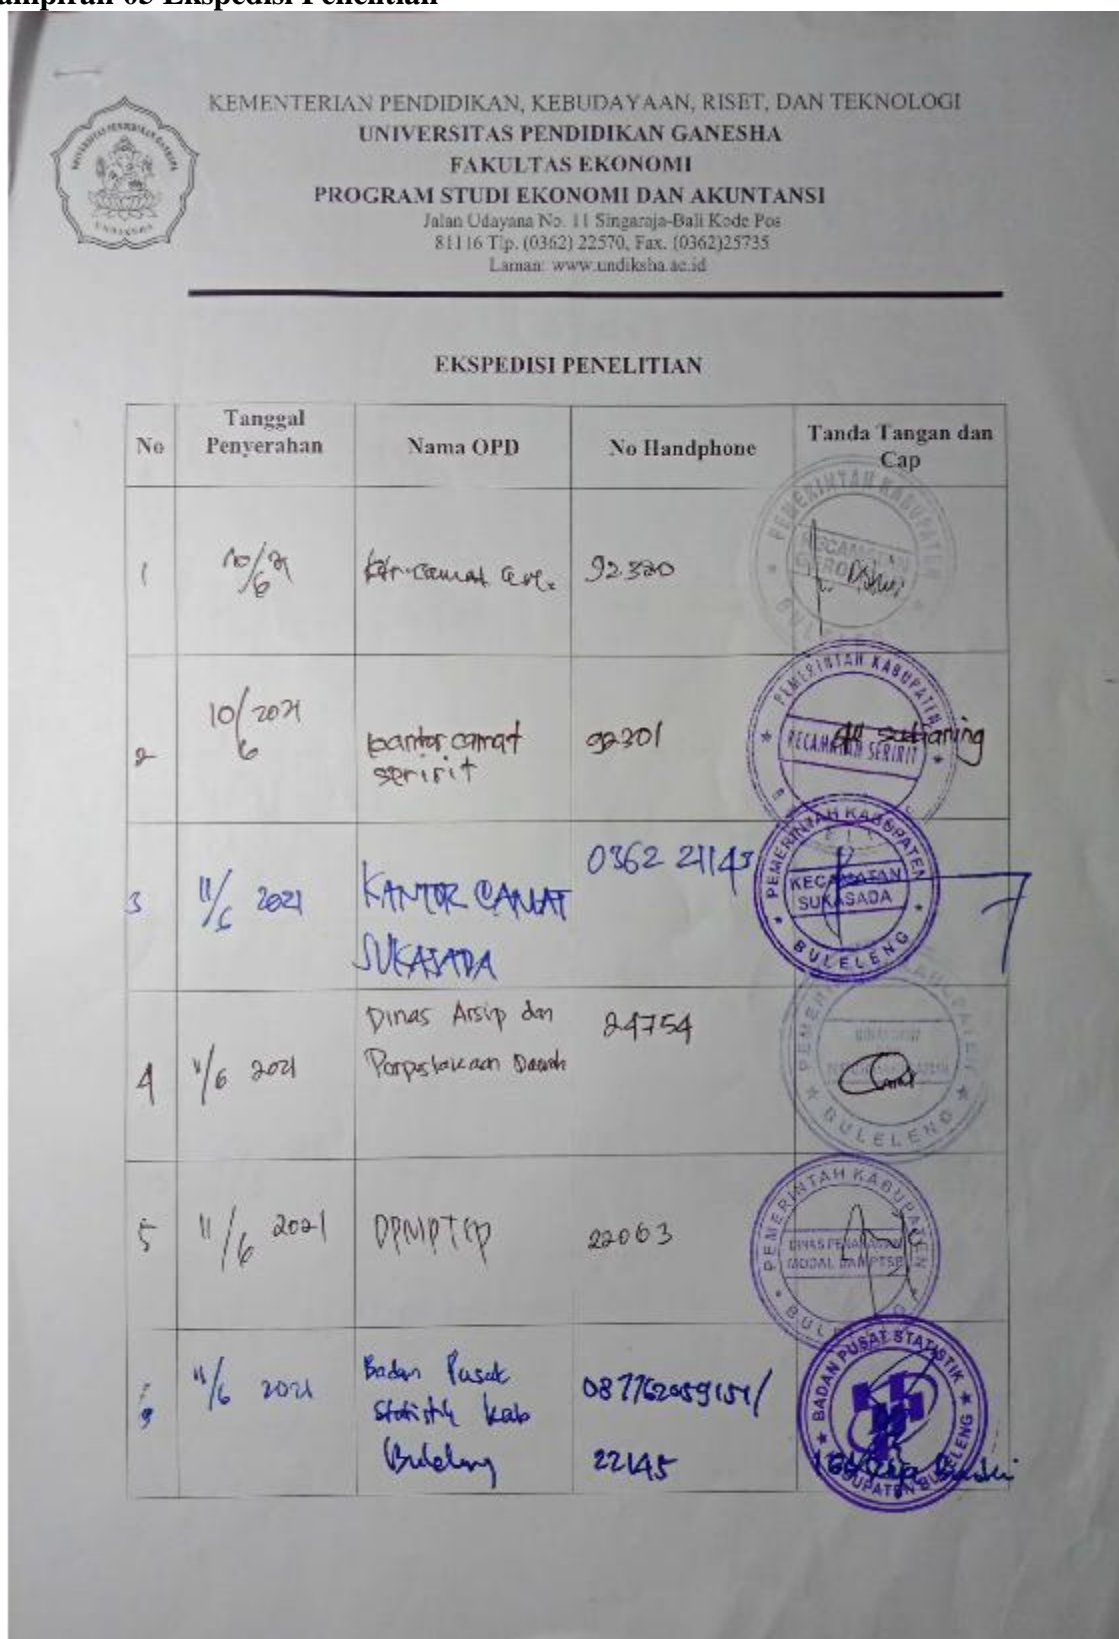 Lampiran 05 Ekspedisi Penelitian
KEMENTERIAN PENDIDIKAN, KEBUDAYAAN, RISET, DAN TEKNOLOGI
UNIVERSITAS PENDIDIKAN GANESHA
FAKULTAS EKONOMI
PROGRAM STUDI EKONOMI DAN AKUNTANSI
Jalan Udayana No. 11 Singaraja-Bali Kode Pos
81116 Tlp. (0362) 22570, Fax. (0362)25735
Laman: www.undiksha.ac.id
UNIVERSITAS PENDIDIKAN GANESHA
UNDIKSHA
EKSPEDISI PENELITIAN
No
Tanggal
Penyerahan
Nama OPD
No Handphone
Tanda Tangan dan
Cap
1
10/6 21
Ktr. Camat
92320
PEMERINTAH KABUPATEN
KECAMATAN
2
10/6 2021
kantor camat
seririt
92301
PEMERINTAH KABUPATEN
KECAMATAN SERIRIT
3
11/6 2021
KANTOR CAMAT
SUKASADA
0362 21143
PEMERINTAH KABUPATEN
KECAMATAN
SUKASADA
BULELENG
4
11/6 2021
Dinas Arsip dan
Perpustakaan Daerah
24754
BULELENG
5
11/6 2021
DPMPTSP
22063
PEMERINTAH KABUPATEN
DINAS PENANAMAN
MODAL DAN PTSP
BULELENG
11/6 2021
Badan Pusat
Statistik Kab
Buleleng
22145
BADAN PUSAT STATISTIK
KABUPATEN BULELENG